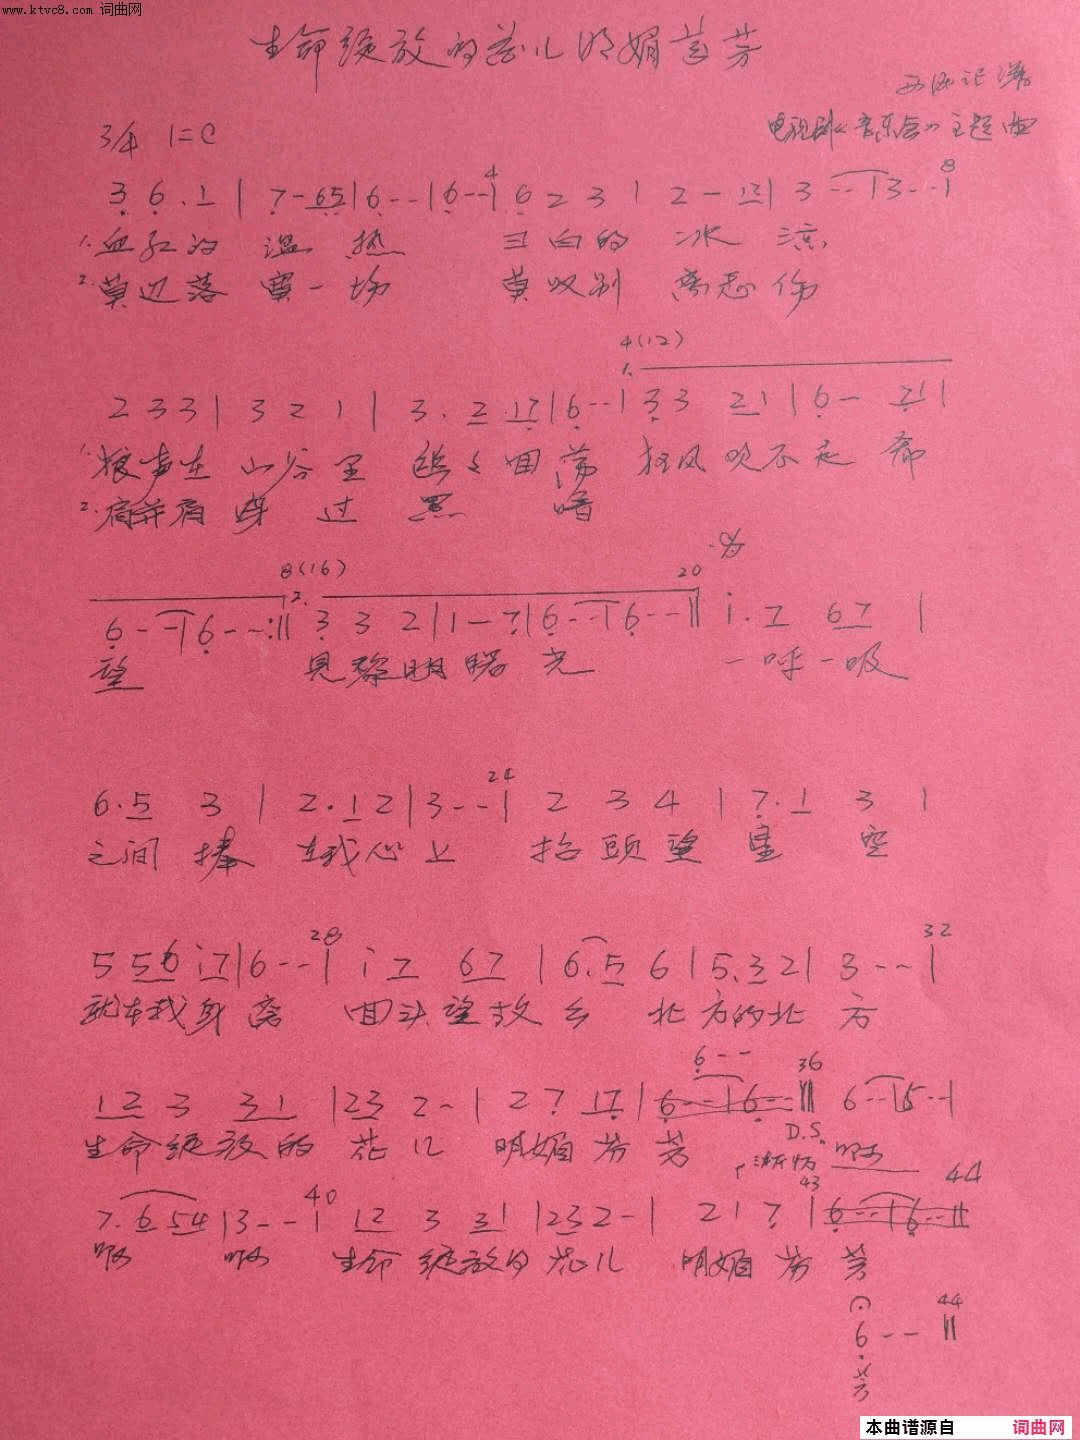 www.ktvc8.com 词曲网
生命绽放的花儿明媚芬芳
记谱
电视剧《音乐会》主题曲
3/4 1=C
4 8
3 6. 1 | 7 - 65 | 6 - - | 6 - - | 6 2 3 | 2 - 12 | 3 - - | 3 - - |
1. 血红的 温 热 白的 冰 凉
2. 莫 落 一场 莫叹别 离 伤
4(12)
1.
2 3 3 | 3 2 1 | 3. 2 17 | 6 - - | 3 3 21 | 6 - 71 |
1. 狼声在 山谷里 回荡 狂风吹不走 希
2. 肩并肩 穿 过 黑 暗
8(16) 2. 20
6 - - | 6 - - :|| 3 3 2 | 1 - 7 | 6 - - | 6 - - || i. 7 67 |
望 见黎明曙光 一呼一吸
24
6. 5 3 | 2. 1 2 | 3 - - | 2 3 4 | 7. 1 3 |
之间 捧 在我心上 抬头望 星 空
28 32
5 56 i7 | 6 - - | i 7 67 | 6. 5 6 | 5. 3 2 | 3 - - |
就在我身旁 回头望故乡 北方的北方
6 - - 36
12 3 31 | 23 2 - | 2 7 17 | 6 - - | 6 - - || 6 - - | 5 - - |
生命绽放的 花儿 明媚芬芳 D.S. 啊
40 43 44
7. 6 54 | 3 - - | 12 3 31 | 23 2 - | 2 1 7 | 6 - - | 6 - - ||
啊 啊 生命绽放的花儿 明媚芬芳
44
6 - - ||
芳
本曲谱源自 词曲网